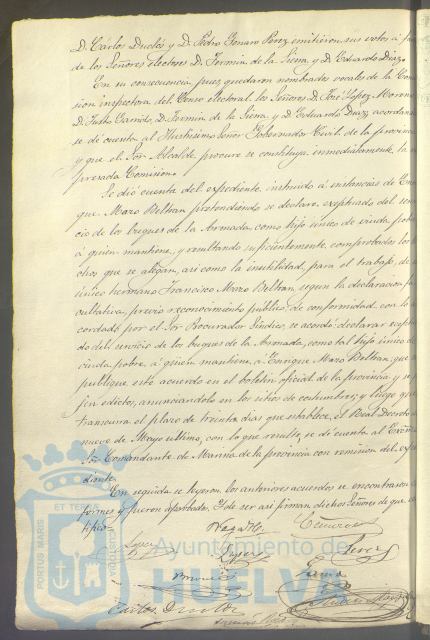 D. Cárlos Duclós y D. Pedro Genaro Perez emitieron sus votos á fa
de los Señores electores D. Fermin de la Sierra, y D. Eduardo Diaz.
En su consecuencia, pues, quedaron nombrados vocales de la Comi
sion inspectora del Censo electoral, los Señores D. José Lopez Moreno
D. Justo Garrido, D. Fermin de la Sierra, y D. Eduardo Diaz, acordan
se dé cuenta al Ilustrísimo Señor Gobernador Civil de la provincia
y que el Sor. Alcalde procure se constituya inmediatamente, la
presada Comision.
Se dió cuenta del expediente instruido á instancias de Enri
que Mazo Beltran pretendiendo se declare exceptuado del servi
cio de los buques de la Armada, como hijo único de viuda pobre
á quien mantiene, y resultando suficientemente comprobados los he
chos que se alegan, así como la inutilidad, para el trabajo, de su
único hermano Francisco Mazo Beltran segun la declaracion fa
cultativa, previo reconocimiento público; de conformidad con lo a
cordado por el Sor. Procurador Síndico, se acordó: declarar excep
do del servicio de los buques de la Armada, como tal hijo único de
viuda pobre, á quien mantiene, á Enrique Mazo Beltran; que se
publique este acuerdo en el boletin oficial de la provincia y se
jen edictos, anunciándolo en los sitios de costumbre; y luego que
transcurra el plazo de treinta dias que establece, el Real Decreto de
nueve de Mayo último, con lo que resulte, se dé cuenta al Excmo
Sr. Comandante de Marina de la provincia con remision del expe
diente.
En seguida se leyeron los anteriores acuerdos se encontraron con
formes y fueron aprobados. Y de ser así firman dichos Señores de que
tifico.
Lopez
Perez
Garcia
Carlos Duclós
PORTUS MARIS
ET TERRAE
CUSTODIA
Ayuntamiento de
HUELVA